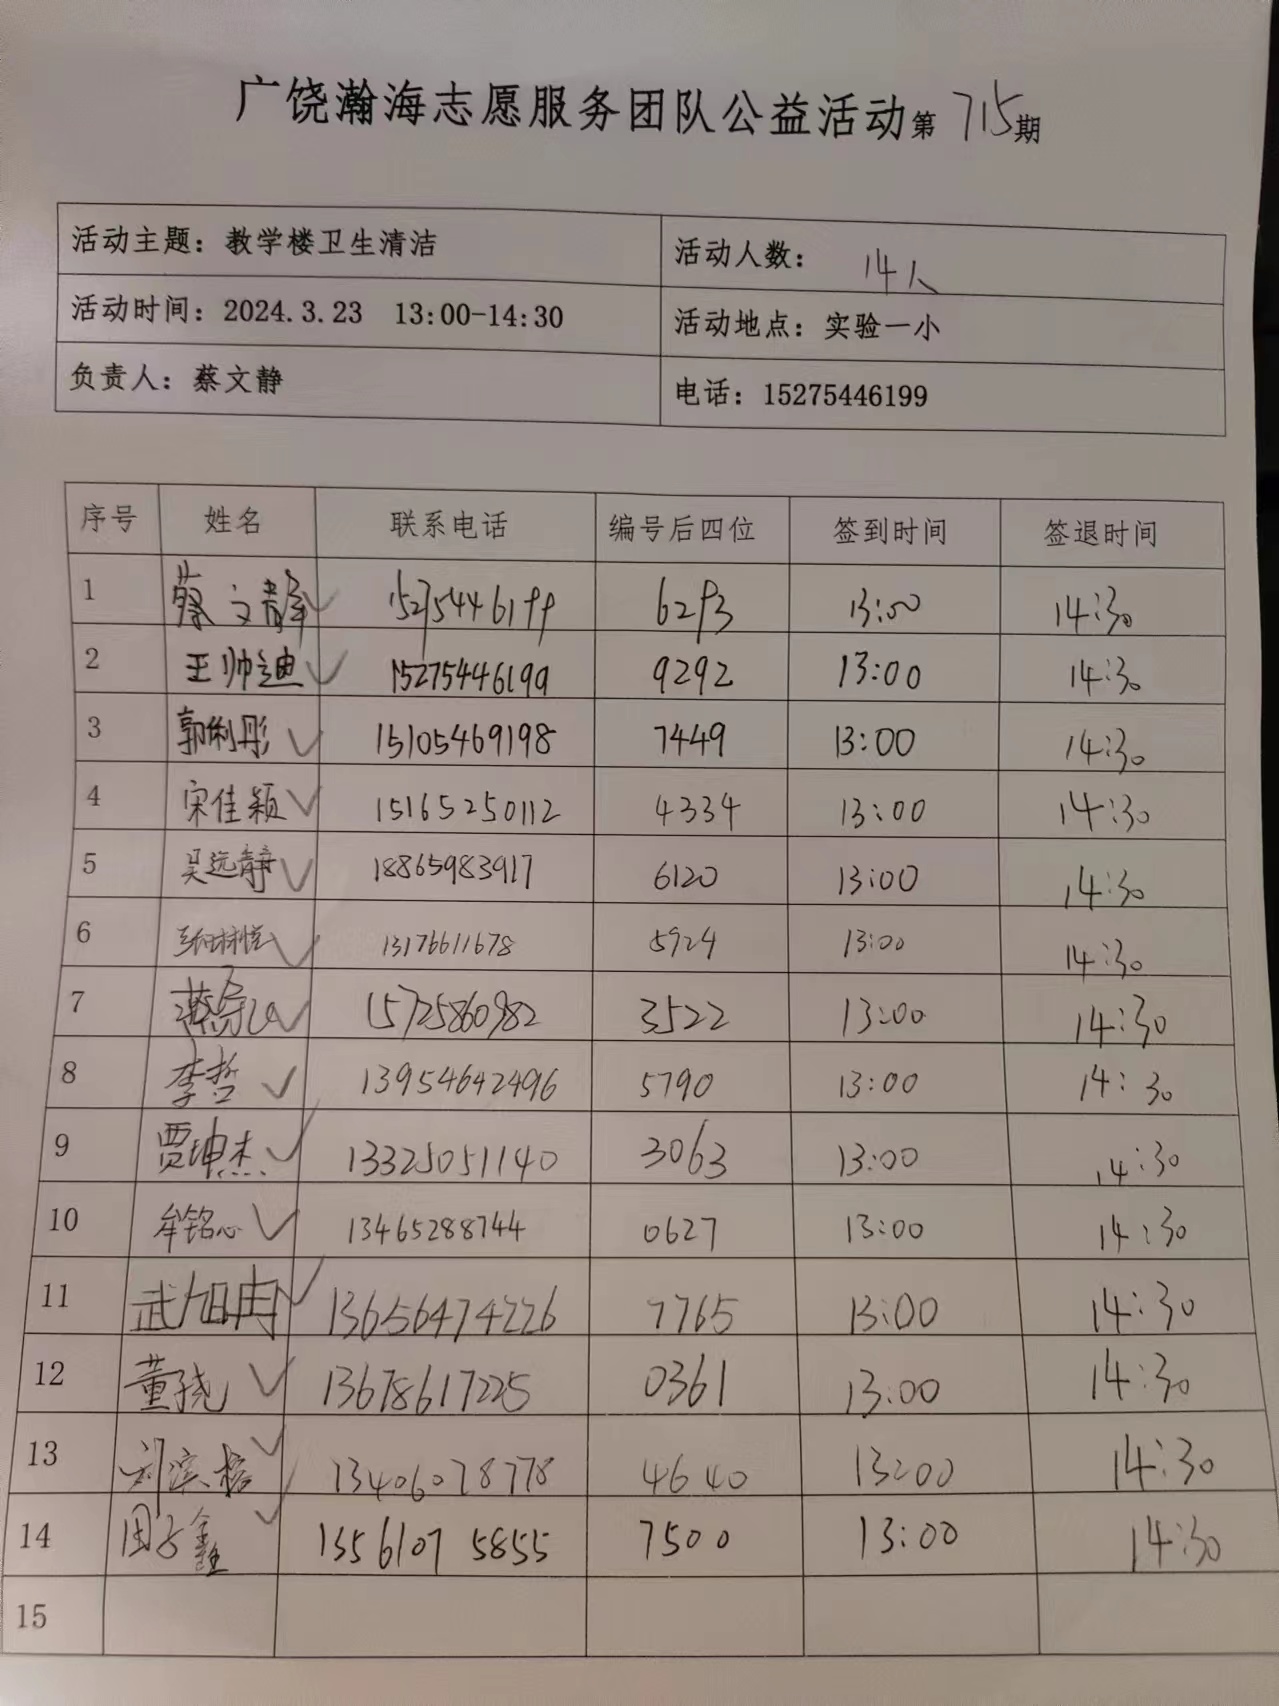 广饶瀚海志愿服务团队公益活动第715期
活动主题：教学楼卫生清洁 活动人数： 14人
活动时间：2024.3.23 13:00-14:30 活动地点：实验一小
负责人：蔡文静 电话：15275446199
序号 姓名 联系电话 编号后四位 签到时间 签退时间
1 蔡文静 15275446199 6293 13:00 14:30
2 王帅迪 15275446199 9292 13:00 14:30
3 郭俐彤 15105469198 7449 13:00 14:30
4 宋佳颖 15165250112 4334 13:00 14:30
5 吴远静 18865983917 6120 13:00 14:30
6 13176611678 5924 13:00 14:30
7 15725860982 3522 13:00 14:30
8 李哲 13954642496 5790 13:00 14:30
9 贾坤杰 13325051140 3063 13:00 14:30
10 牟铭心 13465288744 0627 13:00 14:30
11 武旭冉 13656474226 7765 13:00 14:30
12 董晓 13678617225 0361 13:00 14:30
13 13406078778 4640 13:00 14:30
14 周子鑫 13561075855 7500 13:00 14:30
15